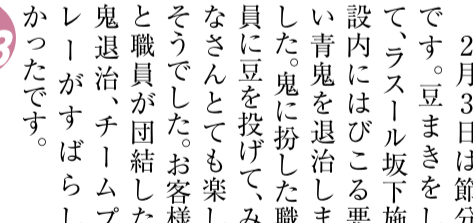 2月3日は節分
です。豆まきをし
て、ラスール坂下施
設内にはびこる悪
い青鬼を退治しま
した。鬼に扮した職
員に豆を投げて、み
なさんとても楽し
そうでした。お客様
と職員が団結した
鬼退治、チームプ
レーがすばらし
かったです。
3